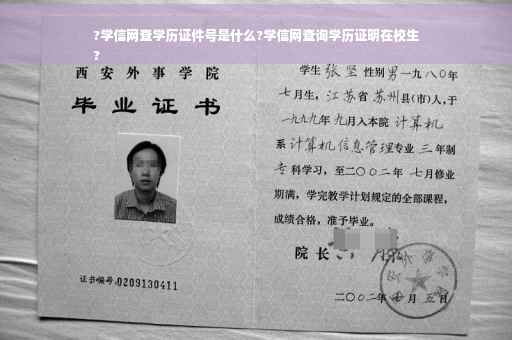 ?学信网登学历证件号是什么?学信网查询学历证明在校生
?
西安外事学院
毕业证书
证书编号:0209130411
学生 张坚 性别男一九八〇年
七月生，江苏省苏州县(市)人,于
一九九九年九月入本院 计算机
系计算机信息管理专业 三 年制
专科学习，至二〇〇二年 七月修业
期满，学完教学计划规定的全部课程，
成绩合格，准予毕业。
院长
二〇〇二年 月五日